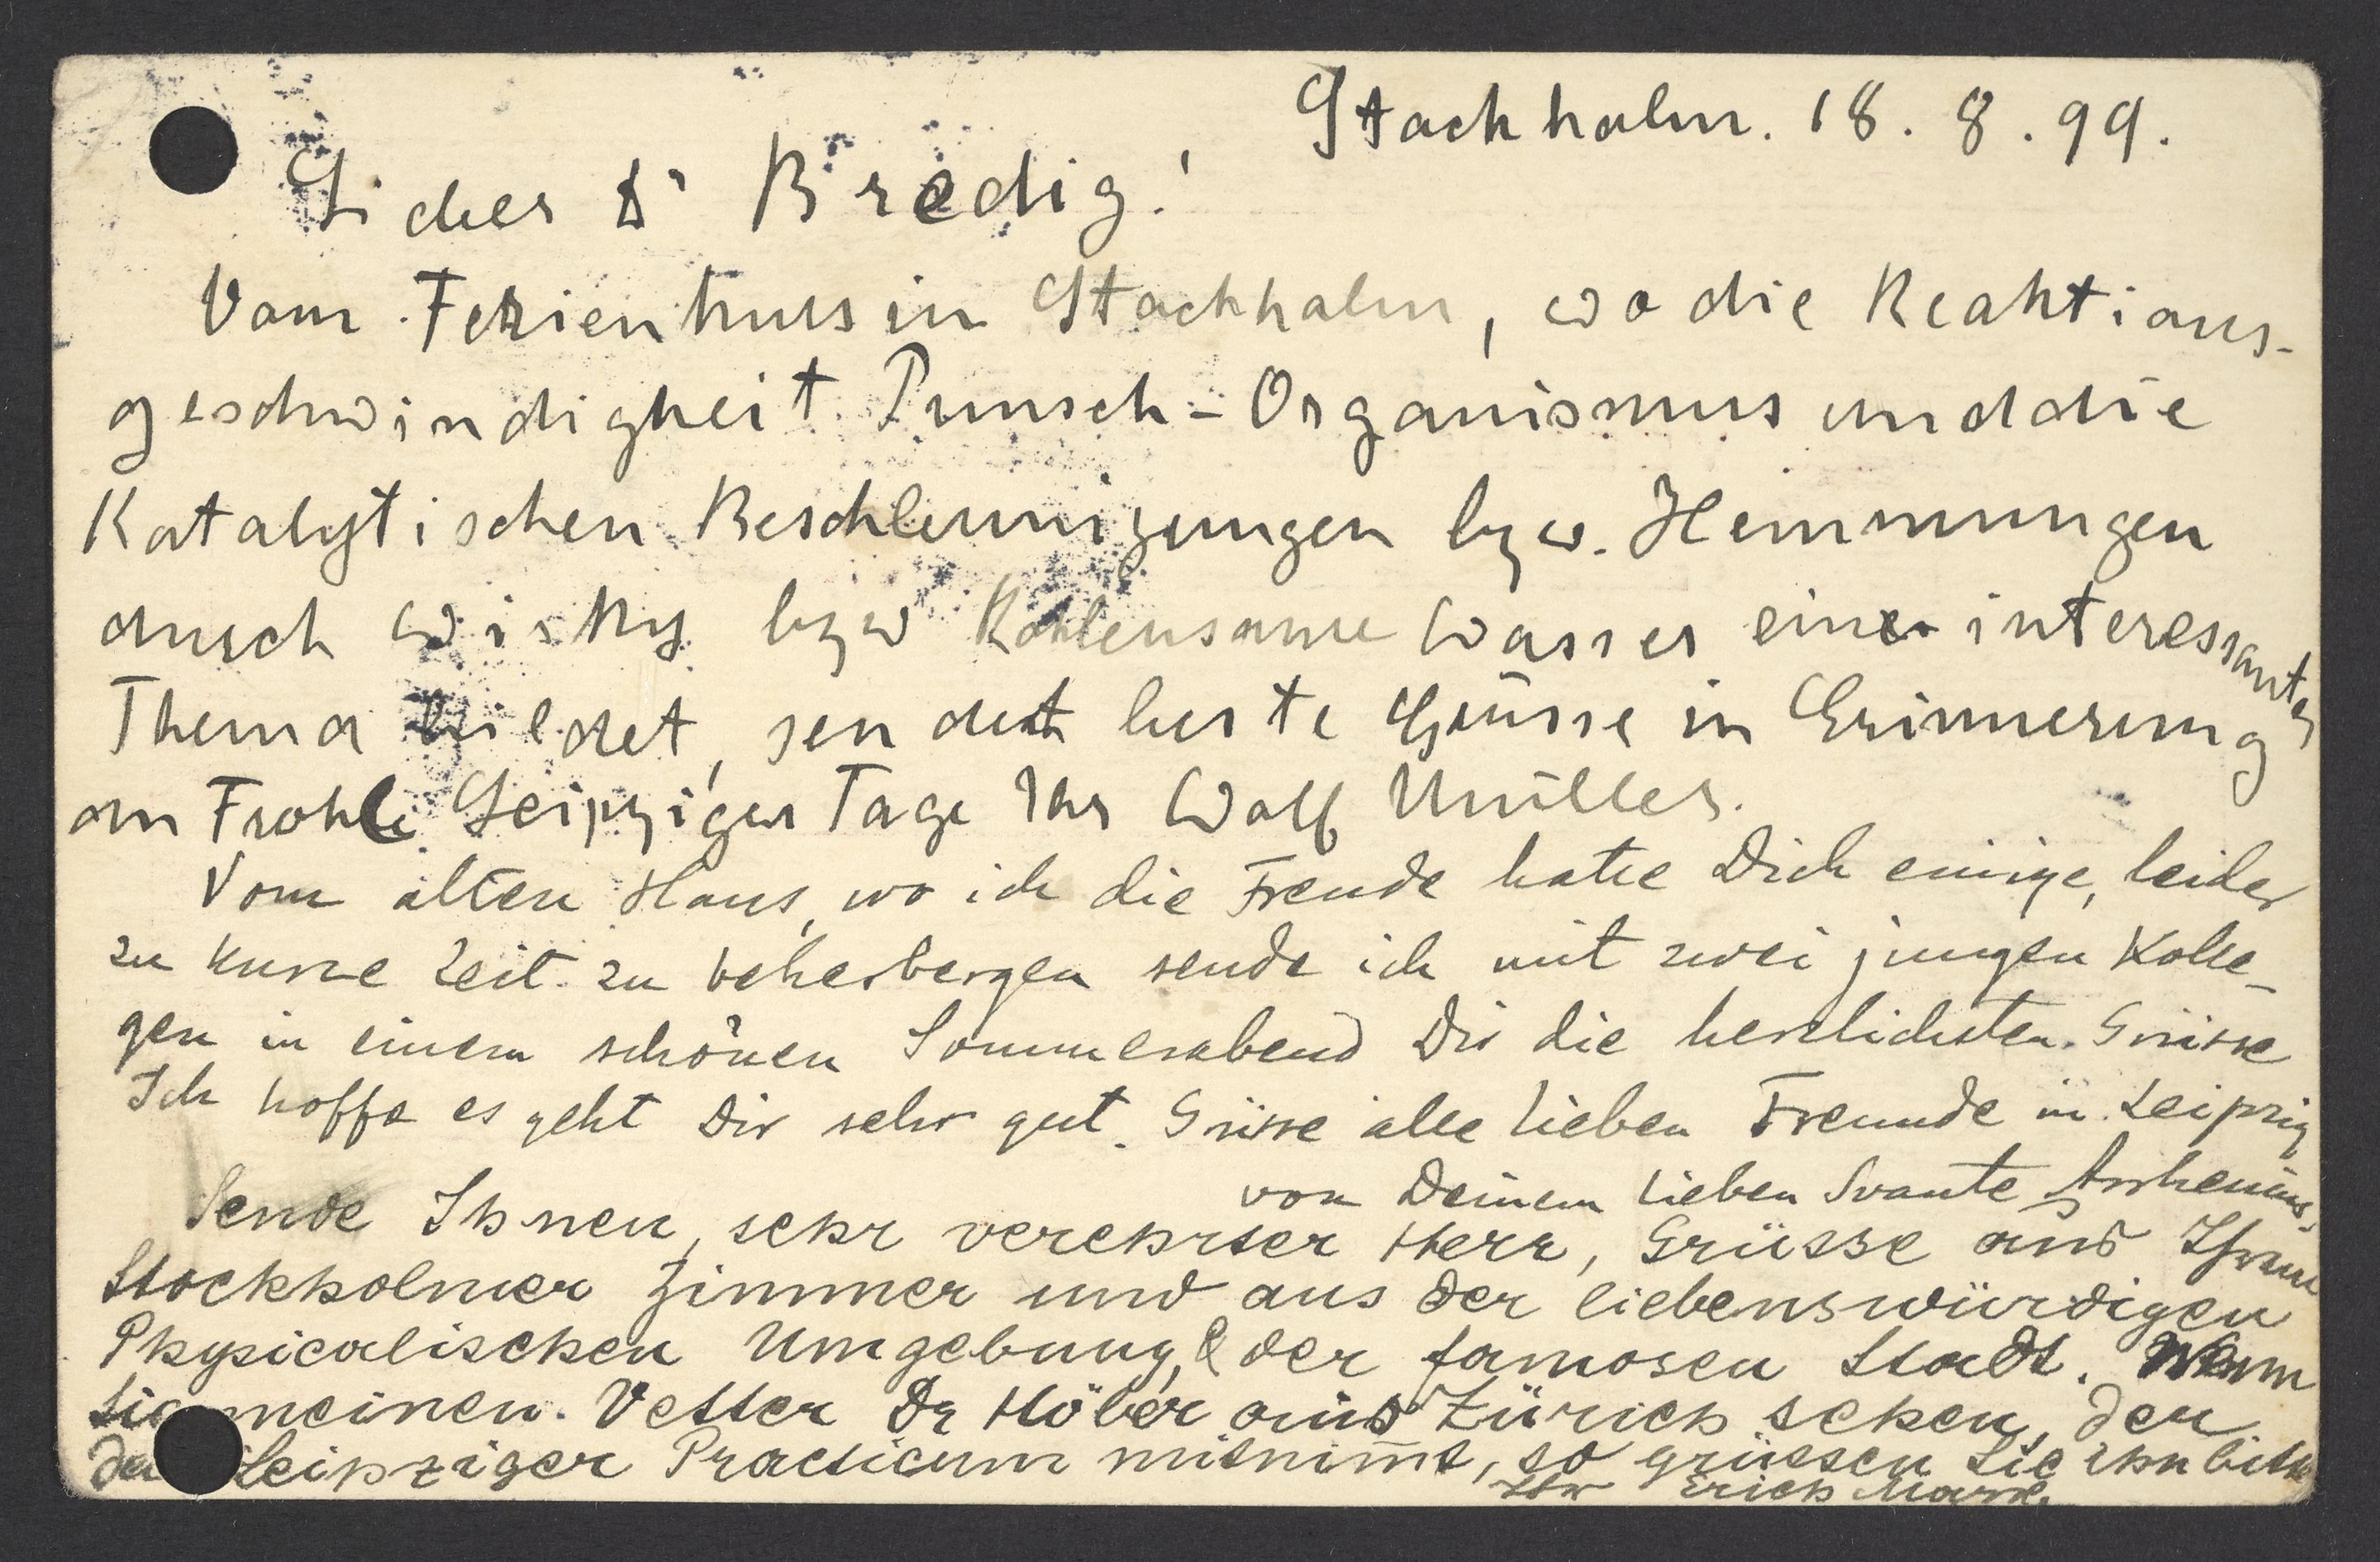 Stockholm. 18. 8. 99.
Lieber Dr Bredig!
Vom Ferienkurs in Stockholm, wo die Reaktions-
geschwindigkeit Punsch-Organismus und die
Katalytischen Beschleunigungen bzw. Hemmungen
durch Wisky bzw Kohlensaure Wasser ein interessantes
Thema bildet, sendet beste Grüsse in Erinnerung
an Frohe Leipziger Tage Ihr Wolf Müller.
Vom alten Haus, wo ich die Freude hatte Dich einige, leider
zu kurze Zeit zu beherbergen sende ich mit zwei jungen Kolle-
gen in einem schönen Sommerabend Dir die herzlichsten Grüsse
Ich hoffe es geht Dir sehr gut. Grüsse alle lieben Freunde in Leipzig
von Deinem lieben Svante Arrhenius.
Sende Ihnen, sehr verehrter Herr, Grüsse aus Ihrem
Stockholmer Zimmer und aus der liebenswürdigen
Physicalischen Umgebung, & der famosen Stadt. Wenn
Sie meinen Vetter Dr Höber aus Zürich sehen, der
das Leipziger Practicum mitnimt, so grüssen Sie ihn bitte
Ihr Erich